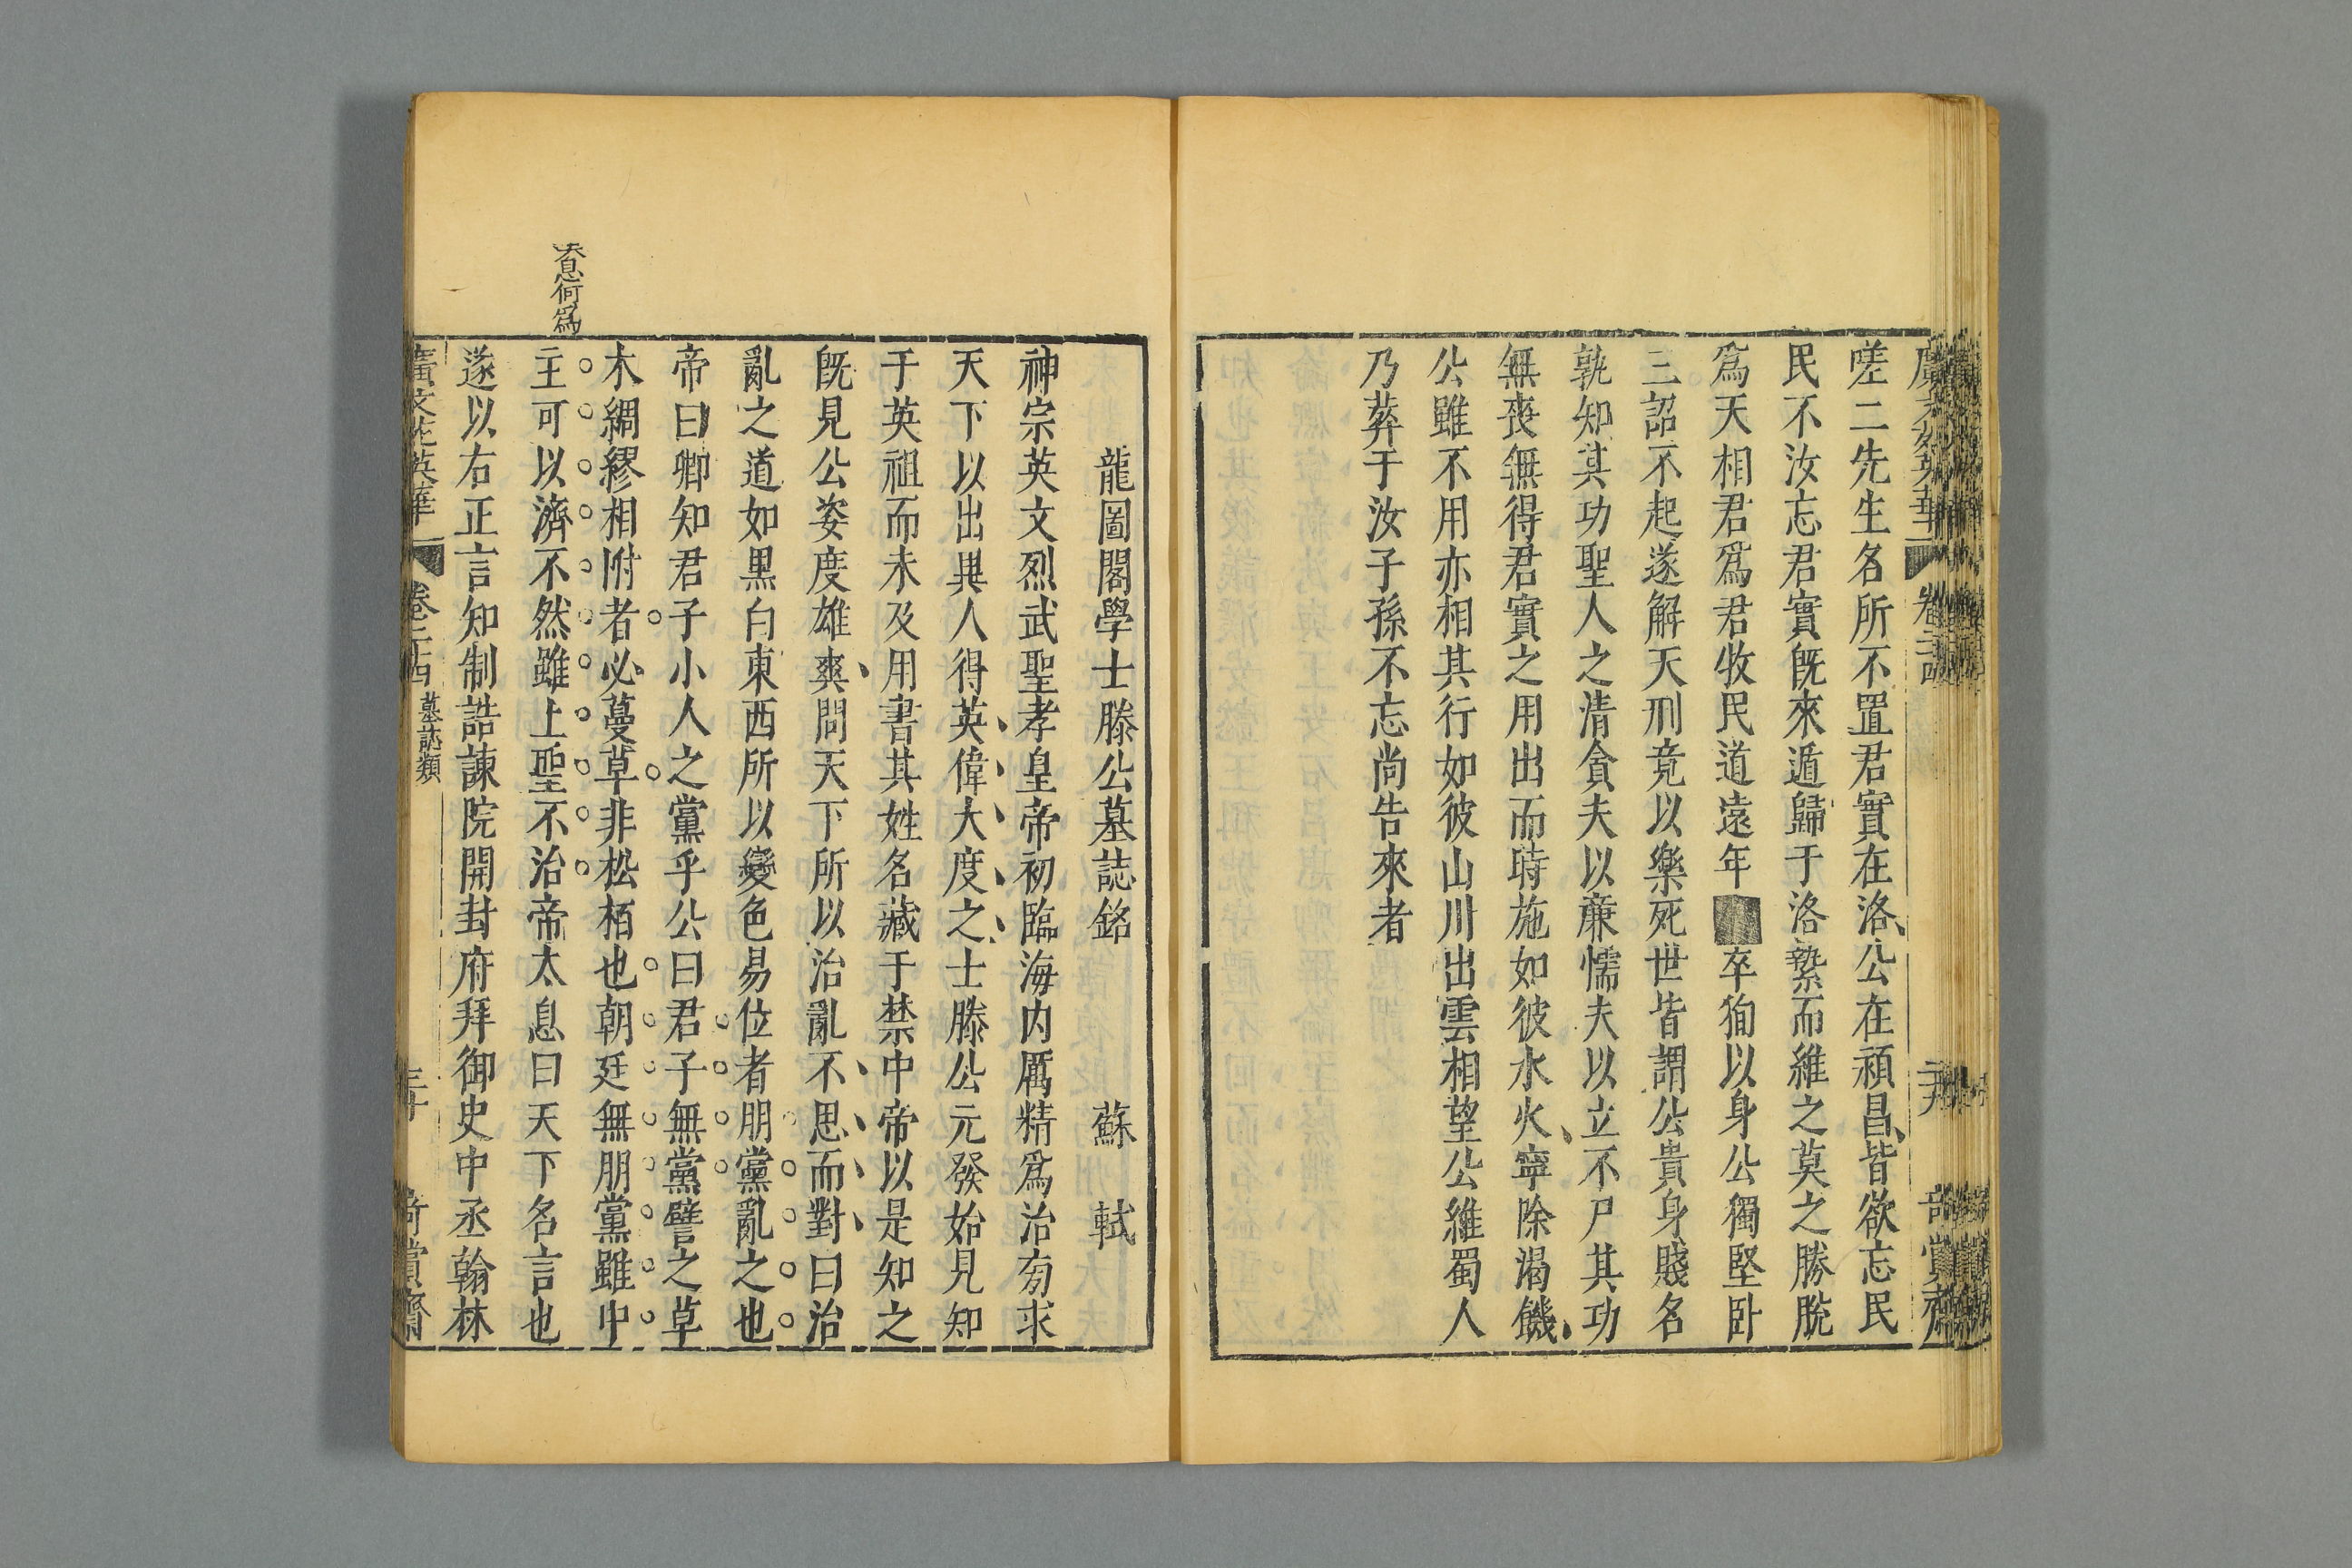 嗟二先生名所不置君實在洛公在潁昌皆欲忘民
民不汝忘君實旣來遁歸于洛縶而維之莫之勝脫
爲天相君爲君牧民道遠年卒徇以身公獨堅卧
三詔不起遂解天刑竟以樂死世皆謂公貴身賤名
孰知其功聖人之清貪夫以廉懦夫以立不尸其功
無喪無得君實之用出而時施如彼水火寧除渴饑
公雖不用亦相其行如彼山川出雲相望公維蜀人
乃葬于汝子孫不忘尚告來者
龍圖閣學士滕公墓誌銘 蘇 軾
神宗英文烈武聖孝皇帝初臨海内厲精爲治旁求
天下以出異人得英偉大度之士滕公元發始見知
于英祖而未及用書其姓名藏于禁中帝以是知之
旣見公姿度雄爽問天下所以治亂不思而對曰治
亂之道如黑白東西所以變色易位者朋黨亂之也
帝曰卿知君子小人之黨乎公曰君子無黨譬之草
木綢繆相附者必蔓草非松栢也朝廷無朋黨雖中
主可以濟不然雖上聖不治帝太息曰天下名言也
遂以右正言知制誥諫院開封府拜御史中丞翰林
太息何爲
廣文苑英華 卷二十四 墓誌類 三十 奇賞齋